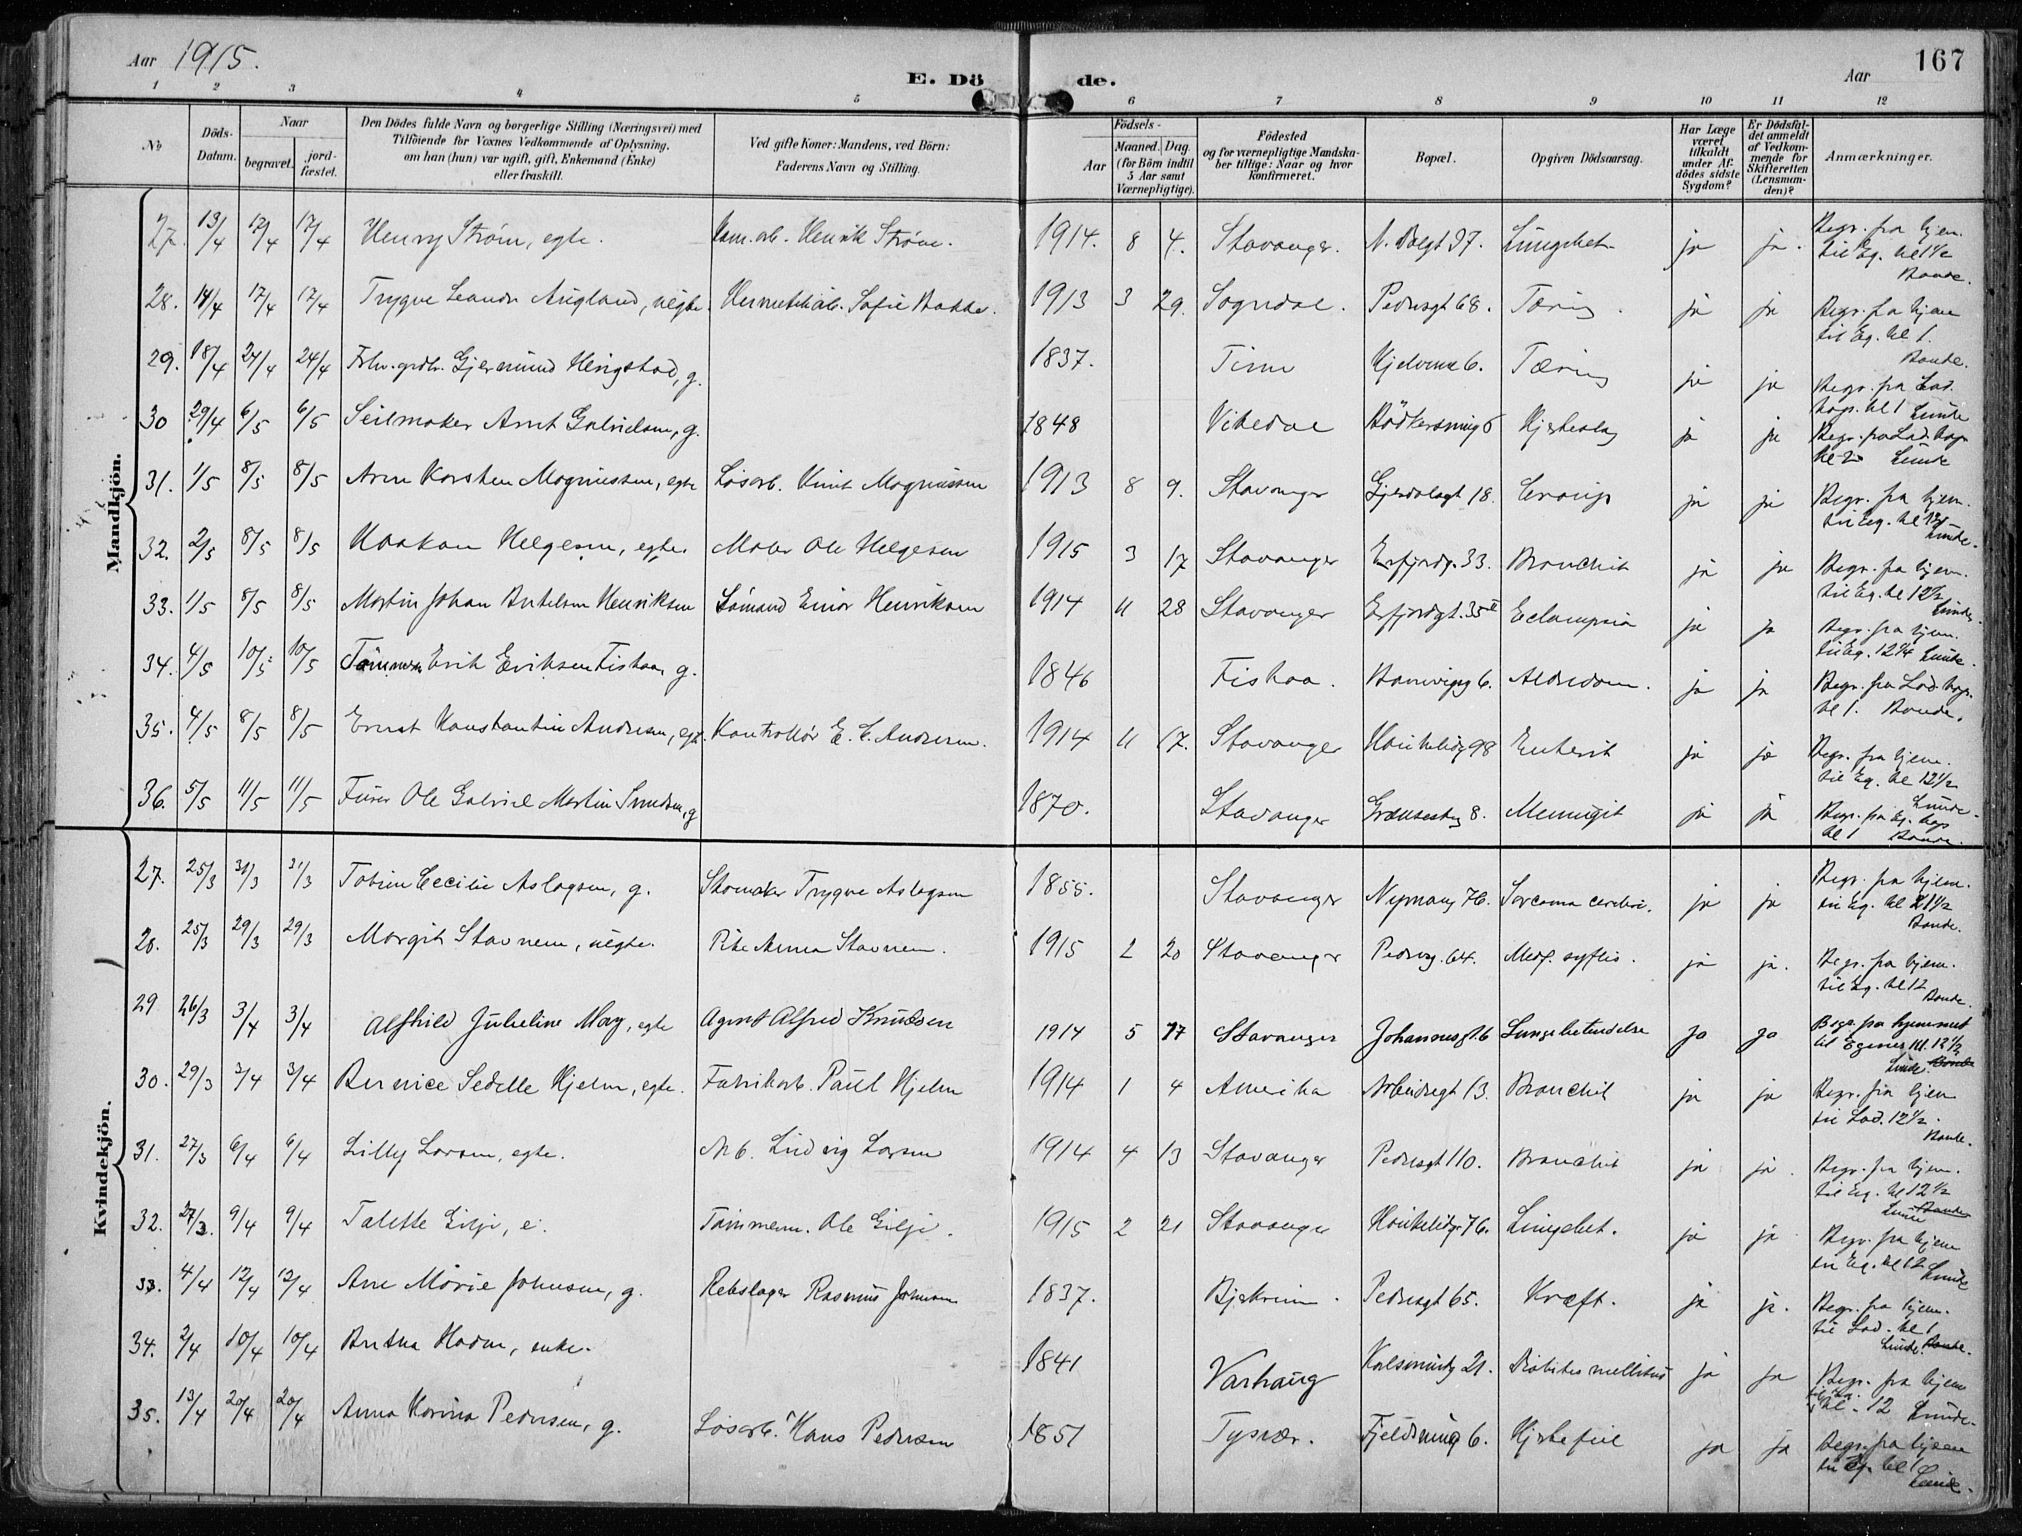 Aar 1915.
E. Dö de.
Aar 167
1 2 3 4 5 6 7 8 9 10 11 12
No
Döds-
Datum.
Naar
begravet.
jord-
fæstet.
Den Dödes fulde Navn og borgerlige Stilling (Næringsvei) med
Tilföiende for Voxnes Vedkommende af Oplysning,
om han (hun) var ugift, gift, Enkemand (Enke)
eller fraskilt.
Ved gifte Koner: Mandens, ved Börn:
Faderens Navn og Stilling.
Födsels-
Aar
Maaned. Dag.
(for Börn indtil
5 Aar samt
Værnepligtige).
Födested
og for værnepligtige Mandska-
ber tillige: Naar og hvor
konfirmeret.
Bopæl.
Opgiven Dödsaarsag.
Har Læge
været
tilkaldt
under Af-
dödes sidste
Sygdom?
Er Dödsfal-
det anmeldt
af Vedkom-
mende for
Skifteretten
(Lensman-
den)?
Anmærkninger.
Mandkjön.
27. 13/4 17/4 17/4 Henry Strøm, egte. Henrik Strøm. 1914. 8 4. Stavanger. 37. Lungebet. ja ja. Begr. fra hjem.
til Eg. kl 1 1/2
Bonde.
28. 14/4 17/4 17/4 Trygve Leander Augland, uegte. Sofie Bakke. 1913 3 29. Sogndal. Pedersgt 68. Tæring. ja ja Begr. fra hjem
til Eg. kl 1.
Bonde.
29. 18/4 24/4 24/4 Gjermund Hengstad, g. 1837. Time Kjelvene 6. Tæring ja ja Begr. fra Lad.
kap. kl 1 Lunde
30 29/4 6/5 6/5 Seilmaker Arnt Gabrielsen, g. 1848 Vikedal Bödkersmug 6 Hjerteslag ja ja Begr. fra Lad. kap.
kl 2 Lunde
31. 1/5 8/5 8/5 Arne Karsten Magnussen, egte Løsarb. Knut Magnussen 1913 8 9. Stavanger Gjesdalsgt 18. Croup ja ja Begr. fra hjem.
til Eg. kl 12
Lunde.
32. 2/5 8/5 8/5 Haakon Helgesen, egte. Maler Ole Helgesen 1915 3 17 Stavanger Erfjordg. 33. Bronchit ja ja Begr. fra hjem.
til Eg. kl 12 1/2
Lunde.
33. 1/5 8/5 8/5 Martin Johan Henriksen Sømand Einar Henriksen 1914 11 28 Stavanger Erfjordgt. 35 Eclampsia ja ja Begr. fra hjem.
til Eg. 12 1/4 Lunde.
34. 4/5 10/5 10/5 Tømmerm Erik Eriksen Fiskaa, g. 1846 Fiskaa. 6. Alderdom. ja ja Begr. fra Lad. kap.
kl 1. Bonde.
35. 4/5 8/5 8/5 Ernst Konstantin Andersen, egte. Kontrollør E. C. Andersen. 1914 11 17. Stavanger Haukeligt 98 Enterit ja ja Begr. fra hjem.
til Eg. kl 12 1/2
Lunde.
36. 5/5 11/5 11/5 Furer Ole Gabriel Martin g 1870. Stavanger Grænsesteg 8. Meningit ja ja Begr. fra Eg. kap
kl 1 Bonde.
Kvindekjön.
27. 25/3 31/3 31/3 Cecilie Aslagsen, g. Skomaker Trygve Aslagsen 1855. Stavanger 76. Sarcoma cerebri. ja ja Begr. fra hjem.
til Eg. kl 1 1/2
Bonde.
28. 25/3 29/3 29/3 Margit Stavnem, uegte. Pike Anna Stavnem. 1915 2 20 Stavanger Pedersg. 64. Medf. syfilis. ja ja. Begr. fra hjem.
til Eg. kl 12
Bonde.
29 26/3 3/4 3/4 Alfhild Juheline May, egte Agent Alfred Knudsen 1914 5 17 Stavanger Johannesgt. 6 Lungebetendelse ja ja Begr. fra hjemmet
til Egenes kl. 12 1/2
Lunde.
30. 29/3 3/4 3/4 Bernice Sedelle Hjelm, egte. Fabrikarb. Paul Hjelm 1914 1 4 Amerika Arbeidergt 13. Bronchit ja ja Begr. fra hjem
til Lad. 12 1/2.
Bonde.
31. 27/3 6/4 6/4 Lilly Larsen, egte. Arb. Ludvig Larsen 1914 4 13 Stavanger Pedersgt 110. Bronchit ja ja. Begr. fra hjem.
til Eg. kl 12 1/2
Lunde
32. 27/3. 9/4 9/4 Talette Gilje, e. Tømmerm. Ole Gilje. 1915 2 21 Stavanger Haukelidg. 76. Lungebet. ja ja Begr. fra hjem
til Eg. kl 12
Lunde
33. 4/4 12/4 12/4 Ane Marie Johnsen, g. Rebslager Rasmus Johnsen 1837. Bjekreim. Pedersgt 65. Kræft. ja ja. Begr. fra hjem.
til Lad. kl 1
Lunde.
34. 2/4 10/4 10/4 enke. 1841 Varhaug 21. Diabetes mellitus ja ja Begr. fra hjem
til Eg.
kl. 12 Lunde.
35. 13/4 20/4 20/4 Anna Karina Pedersen, g. Løsarb. Hans Pedersen 1851 Tysvær. Fjeldsmug 6. Hjertefeil ja ja Begr. fra hjem
til Eg. kl 1
Lunde.